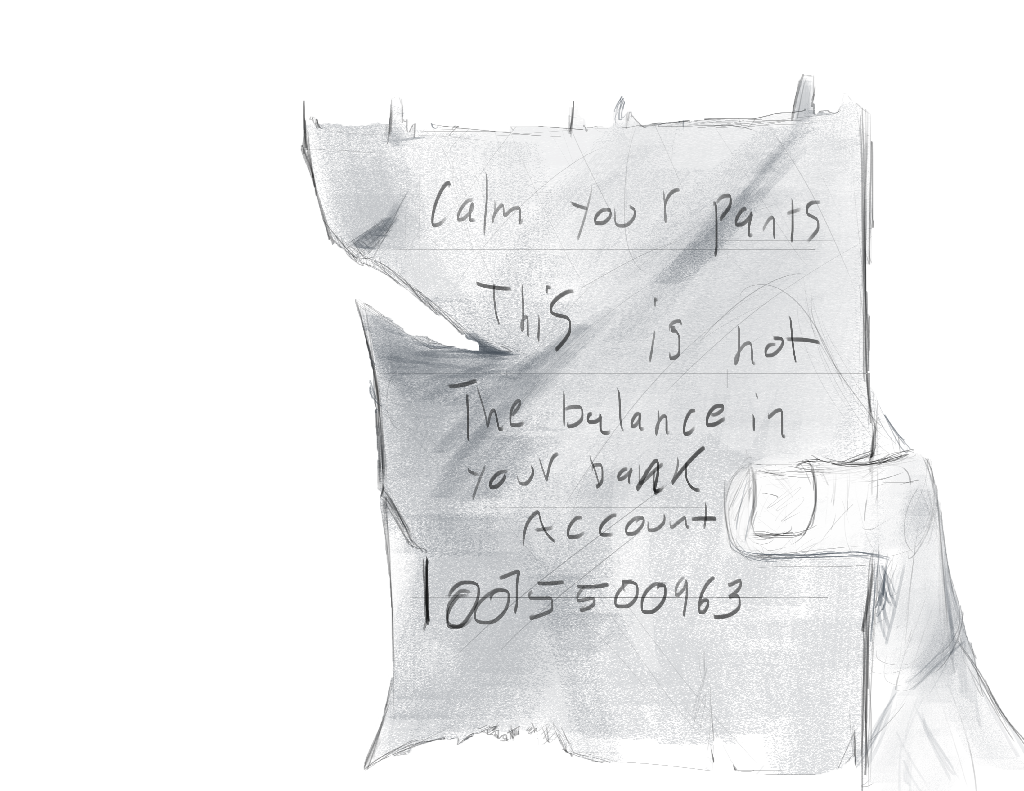 Calm your pants
This is not
The balance in
your bank
Account
10075500963